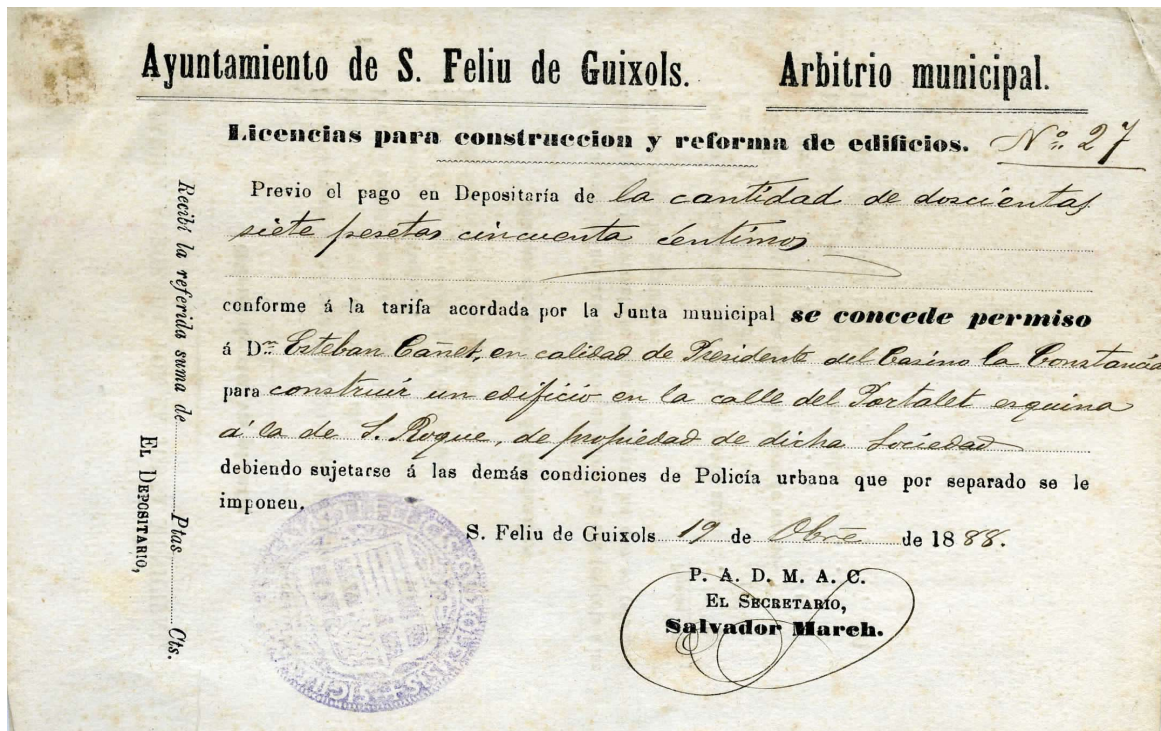 Ayuntamiento de S. Feliu de Guixols. Arbitrio municipal.
Licencias para construccion y reforma de edificios. Nº 27
Previo el pago en Depositaría de la cantidad de doscientas
siete pesetas cincuenta centimos
conforme á la tarifa acordada por la Junta municipal se concede permiso
á Dn Esteban Cañet, en calidad de Presidente del Casino la Constancia
para construir un edificio en la calle del Portalet esquina
á la de S. Roque, de propiedad de dicha Sociedad
debiendo sujetarse á las demás condiciones de Policía urbana que por separado se le
imponen.
S. Feliu de Guixols 19 de Obre de 1888.
P. A. D. M. A. C.
EL SECRETARIO,
Salvador March.
Recibí la referida suma de Ptas Cts.
EL DEPOSITARIO,